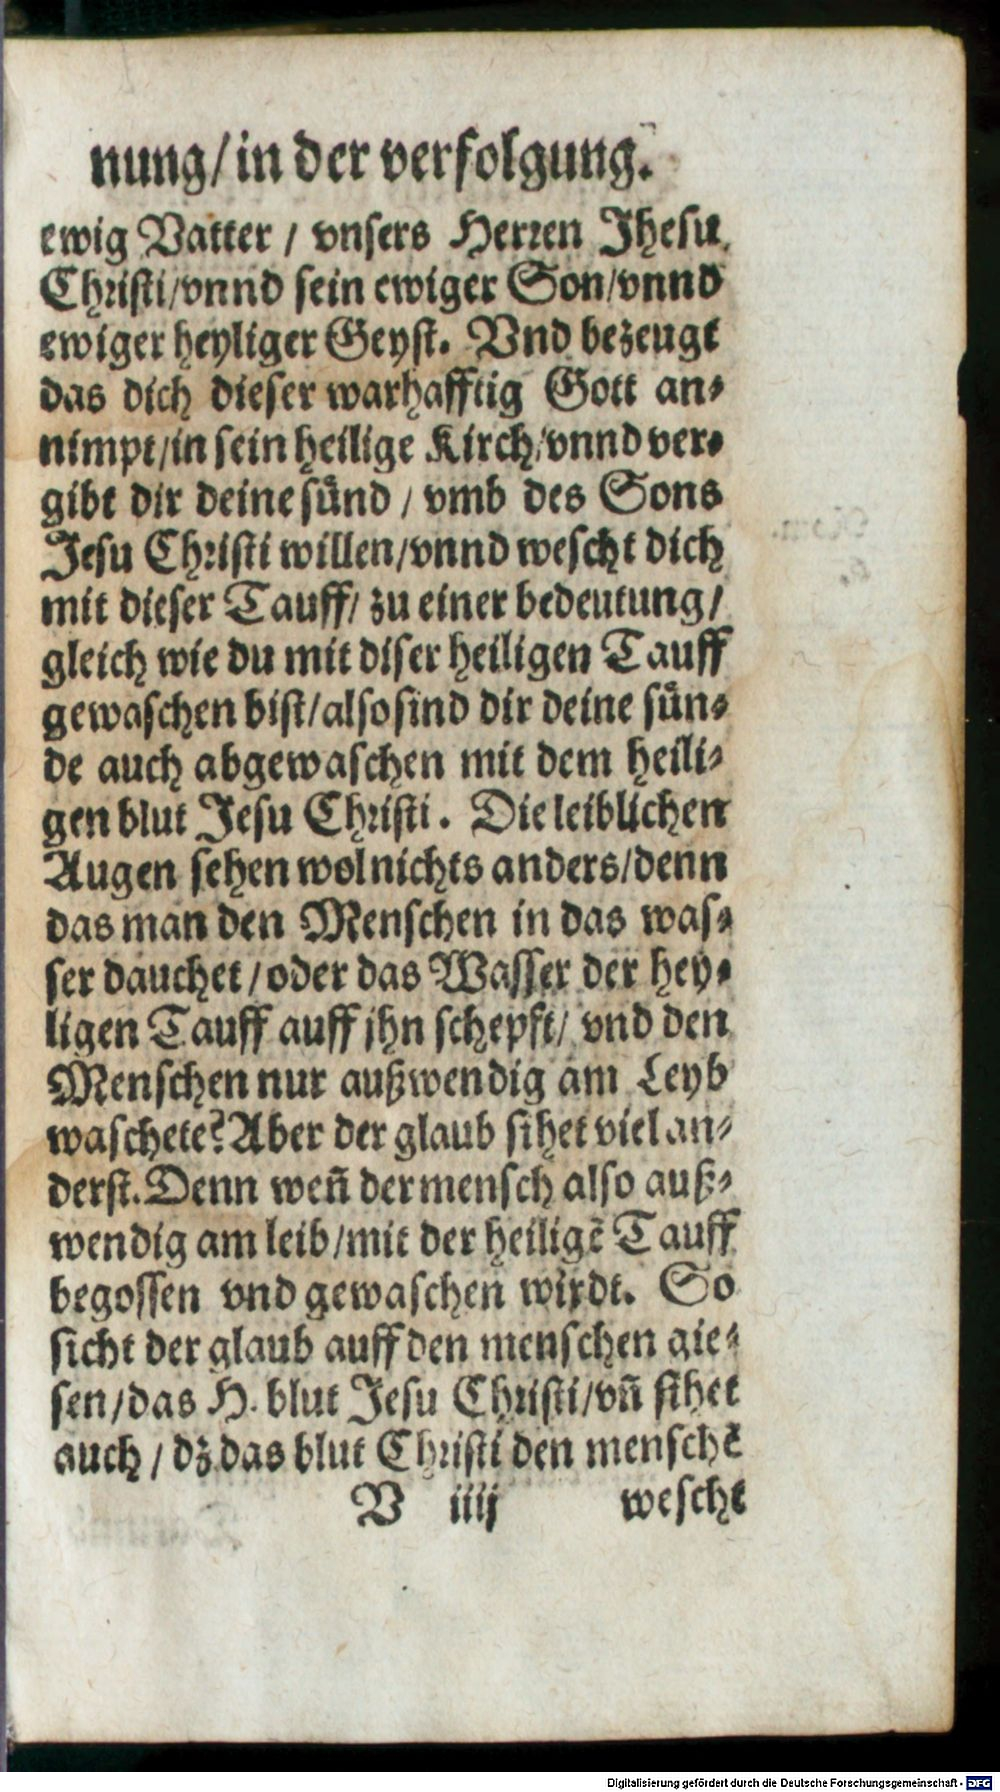 nung/ in der verfolgung.
ewig Vatter / vnsers Herren Jhesu
Christi/vnnd sein ewiger Son/vnnd
ewiger heyliger Geyst. Vnd bezeugt
das dich dieser warhafftig Gott an-
nimpt/in sein heilige Kirch/vnnd ver-
gibt dir deine sünd / vmb des Sons
Jesu Christi willen/vnnd wescht dich
mit dieser Tauff/ zu einer bedeutung/
gleich wie du mit diser heiligen Tauff
gewaschen bist/also sind dir deine sün-
de auch abgewaschen mit dem heili-
gen blut Jesu Christi. Die leiblichen
Augen sehen wol nichts anders/denn
das man den Menschen in das was-
ser dauchet /oder das Wasser der hey-
ligen Tauff auff jhn schepft/ vnd den
Menschen nur außwendig am Leyb
waschete? Aber der glaub sihet viel an-
derst. Denn weñ der mensch also auß-
wendig am leib/mit der heiligẽ Tauff
begossen vnd gewaschen wirdt. So
sicht der glaub auff den menschen gie-
sen/das H. blut Jesu Christi/vñ sihet
auch / dz das blut Christi den menschẽ
V iiij wescht
Digitalisierung gefördert durch die Deutsche Forschungsgemeinschaft - DFG